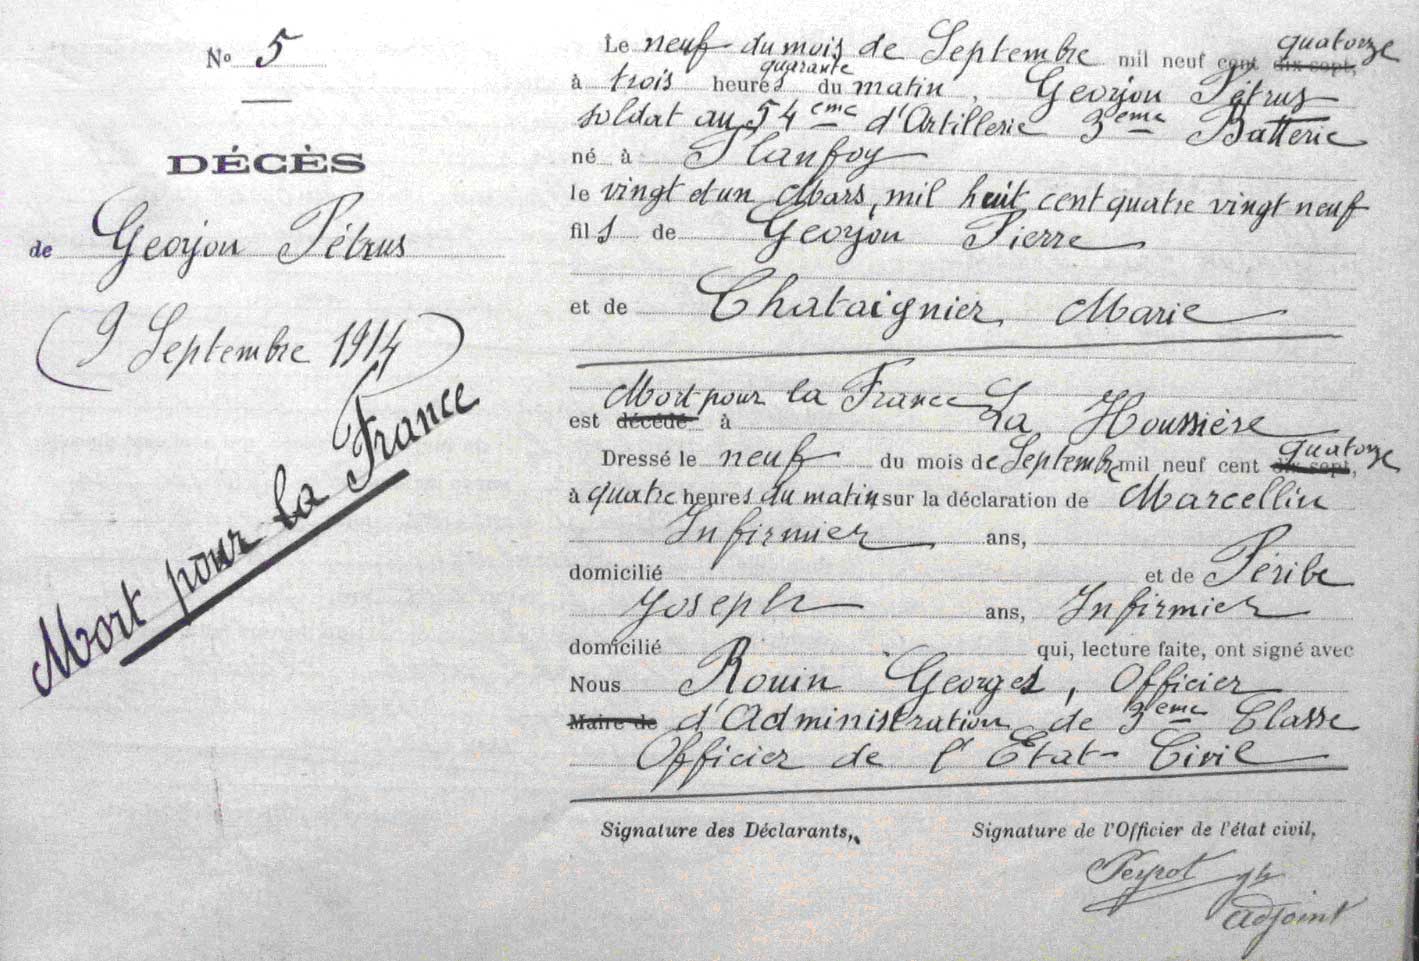 N° 5
DÉCÈS
de Georjon Pétrus
(9 Septembre 1914)
Mort pour la France
Le neuf du mois de Septembre mil neuf cent dix-sept, quatorze
à trois heures quarante du matin, Georjon Pétrus
soldat au 54eme d'Artillerie 3eme Batterie
né à Planfoy
le vingt et un Mars, mil huit cent quatre vingt neuf
fils de Georjon Pierre
et de Chataignier Marie
Mort pour la France
est décédé à La Houssière
Dressé le neuf du mois de Septembre mil neuf cent dix-sept, quatorze
à quatre heures du matin, sur la déclaration de Marcellin
Infirmier ans,
domicilié et de Péribe
Joseph ans, Infirmier
domicilié qui, lecture faite, ont signé avec
Nous Rouin Georges, Officier
Maire de d'Administration de 3eme Classe
Officier de l'Etat-Civil
Signature des Déclarants, Signature de l'Officier de l'état civil,
Peyrot
adjoint